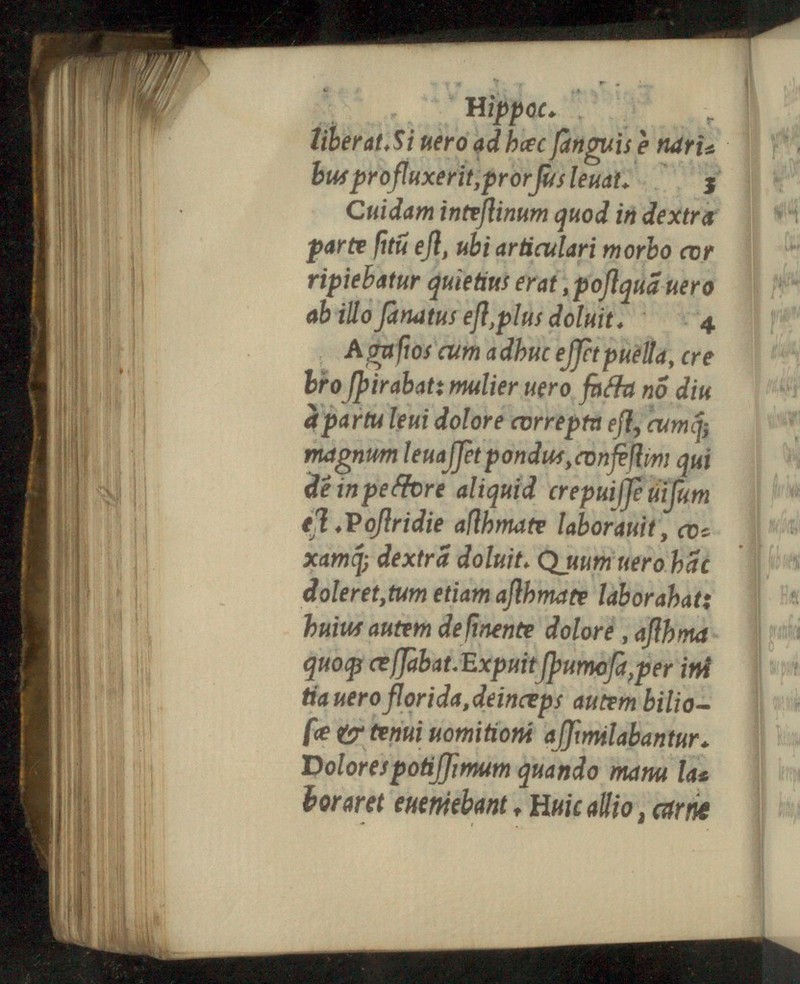 Hippoc.
liberat. Si uero ad hæc ſanguis è nari⸗
bus profluxerit, prorſus leuat. 3
Cuidam inteſtinum quod in dextra
parte ſitũ eſt, ubi articulari morbo cor
ripiebatur quietius erat, poſtquã uero
ab illo ſanatus eſt, plus doluit. 4
Agaſios cum adhuc eſſet puella, cre
bro ſpirabat: mulier uero facta nõ diu
à partu leui dolore correpta eſt, cumq́;
magnum leuaſſet pondus, confeſtim qui
dẽ in pectore aliquid crepuiſſe uiſum
eſt. Poſtridie aſthmate laborauit, co⸗
xamq́; dextrã doluit. Quum uero hãc
doleret, tum etiam aſthmate laborabat:
huius autem deſinente dolore, aſthma
quoq; ceſſabat. Expuit ſpumoſa, per ini
tia uero florida, deinceps autem bilio-
ſæ & tenui uomitioni aſſimilabantur.
Dolores potiſſimum quando manu la⸗
boraret eueniebant. Huic allio, carne